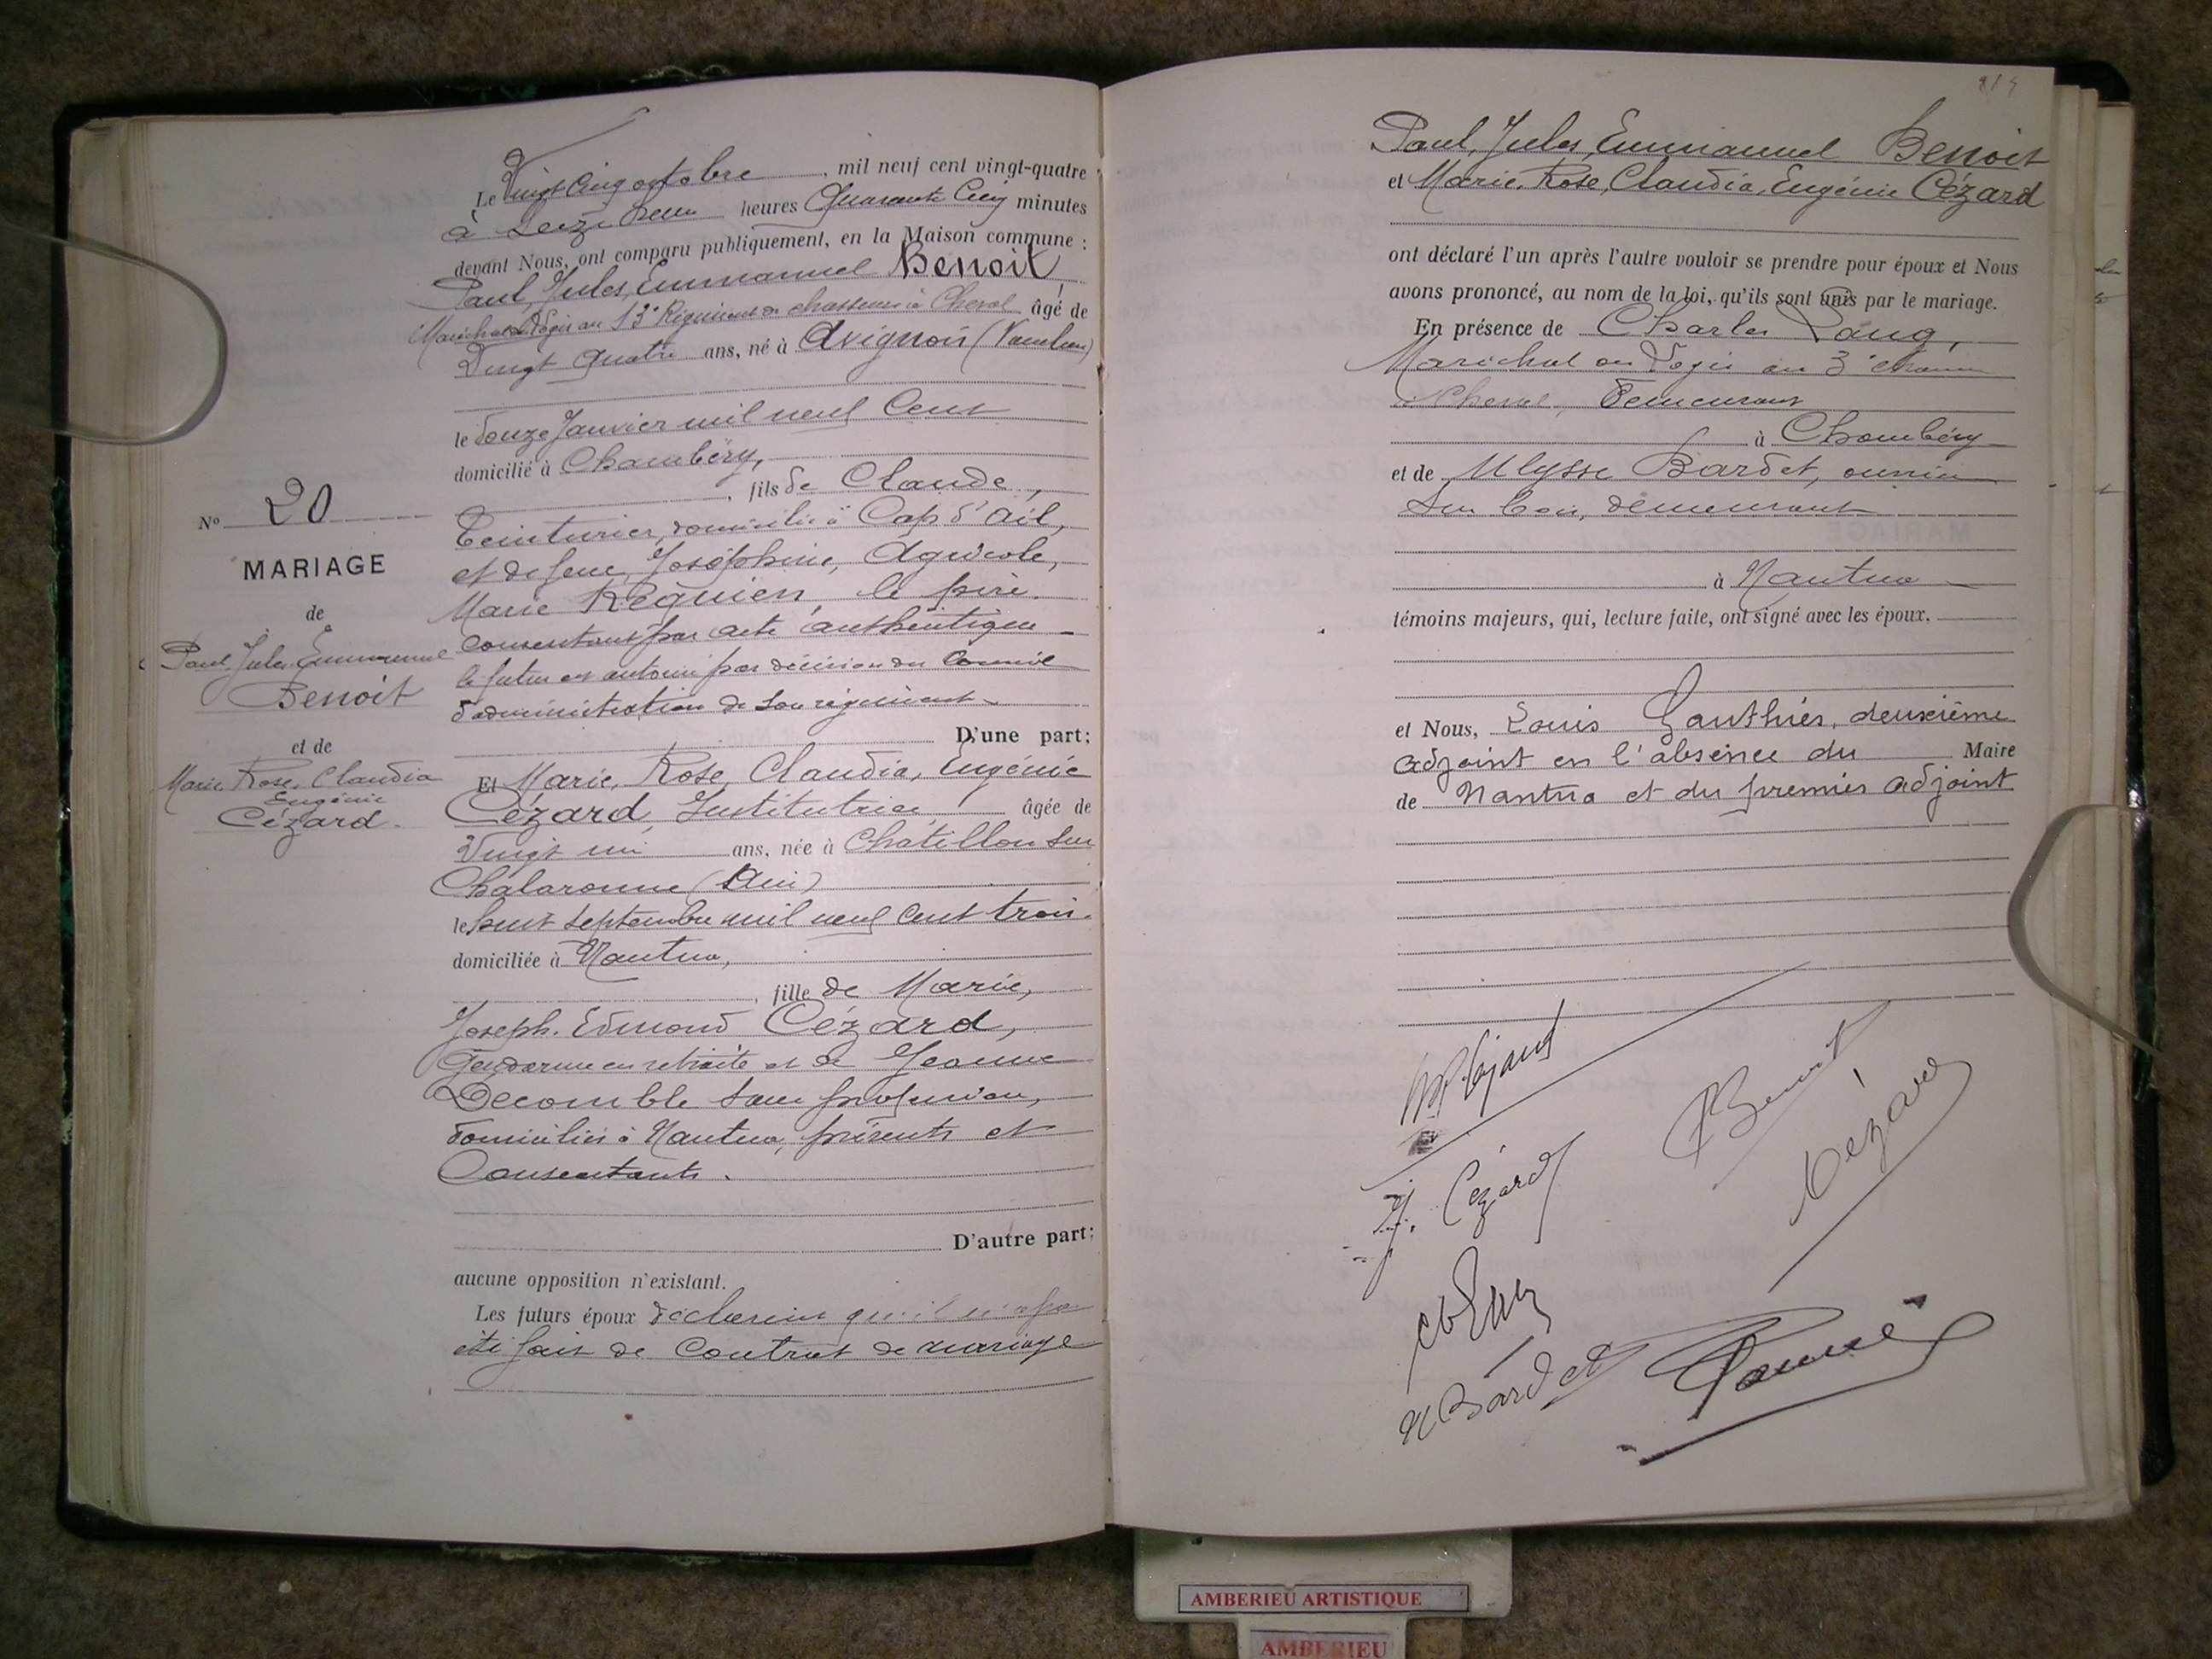 Le Vingt Cinq octobre, mil neuf cent vingt-quatre
à Seize heures heures Quarante Cinq minutes
devant Nous, ont comparu publiquement, en la Maison commune :
Paul, Jules, Emmanuel Benoit,
Maréchal des Logis au 13e Régiment de chasseurs à Cheval âgé de
Vingt quatre ans, né à Avignon (Vaucluse)
le douze Janvier mil neuf Cent
domicilié à Chambéry,
, fils de Claude,
Teinturier, domicilié à Cap d'ail,
et de feue, Joséphine, Agricole,
Marie Réquien, le père
consentant par acte authentique
le futur est autorisé par décision du Conseil
d'administration de son régiment
D'une part;
Nº 20
MARIAGE
de
Paul, Jules, Emmanuel
Benoit
et de
Marie, Rose, Claudia
Eugénie
Cézard.
Et Marie, Rose, Claudia, Eugénie
Cézard, Institutrice âgée de
Vingt un ans, née à Châtillon sur
Chalaronne (Ain)
le huit septembre mil neuf Cent trois.
domiciliée à Nantua,
, fille de Marie,
Joseph, Edmond Cézard,
Gendarme en retraite et de Jeanne
Decomble sans profession,
domiciliés à Nantua, présents et
Consentants.
D'autre part;
aucune opposition n'existant.
Les futurs époux déclarent qu'il n'a pas
été fait de Contrat de mariage
Paul, Jules, Emmanuel Benoit
et Marie, Rose, Claudia, Eugénie Cézard
ont déclaré l'un après l'autre vouloir se prendre pour époux et Nous
avons prononcé, au nom de la loi, qu'ils sont unis par le mariage.
En présence de Charles Lang,
Maréchal des Logis au 3e
à Cheval, Demeurant
à Chambéry
et de Ulysse Bardet, ouvrier
sur bois, demeurant
à Nantua
témoins majeurs, qui, lecture faite, ont signé avec les époux.
et Nous, Louis Gauthier, deuxième
adjoint en l'absence du Maire
de Nantua et du premier adjoint
PBenoit
J. Cézard
Cézard
U Bardet
AMBERIEU ARTISTIQUE
AMBERIEU